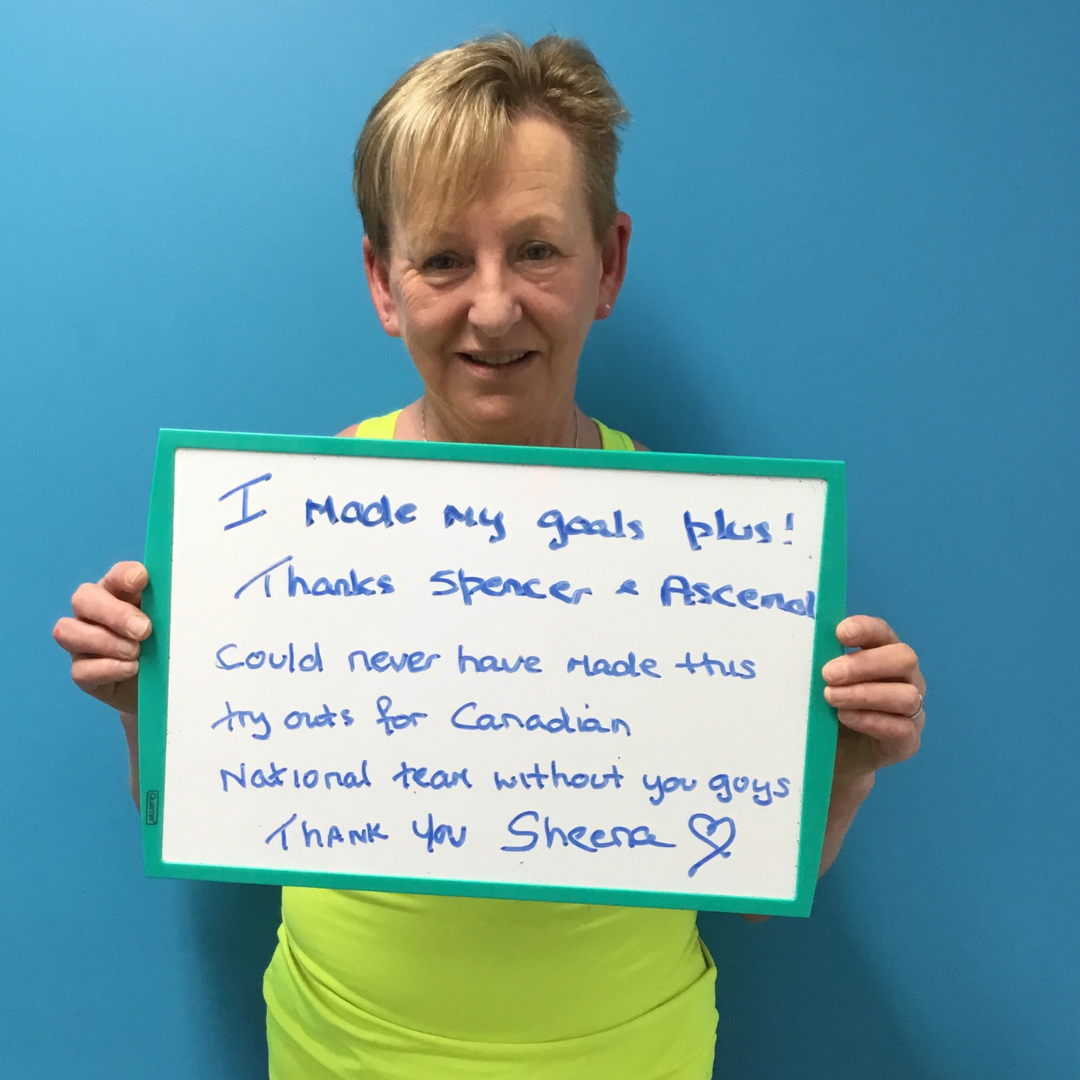 I Made My goals plus!
Thanks Spencer & Ascend
Could never have made this
try outs for Canadian
National team without you guys
Thank You Sheena ♡
Quartet